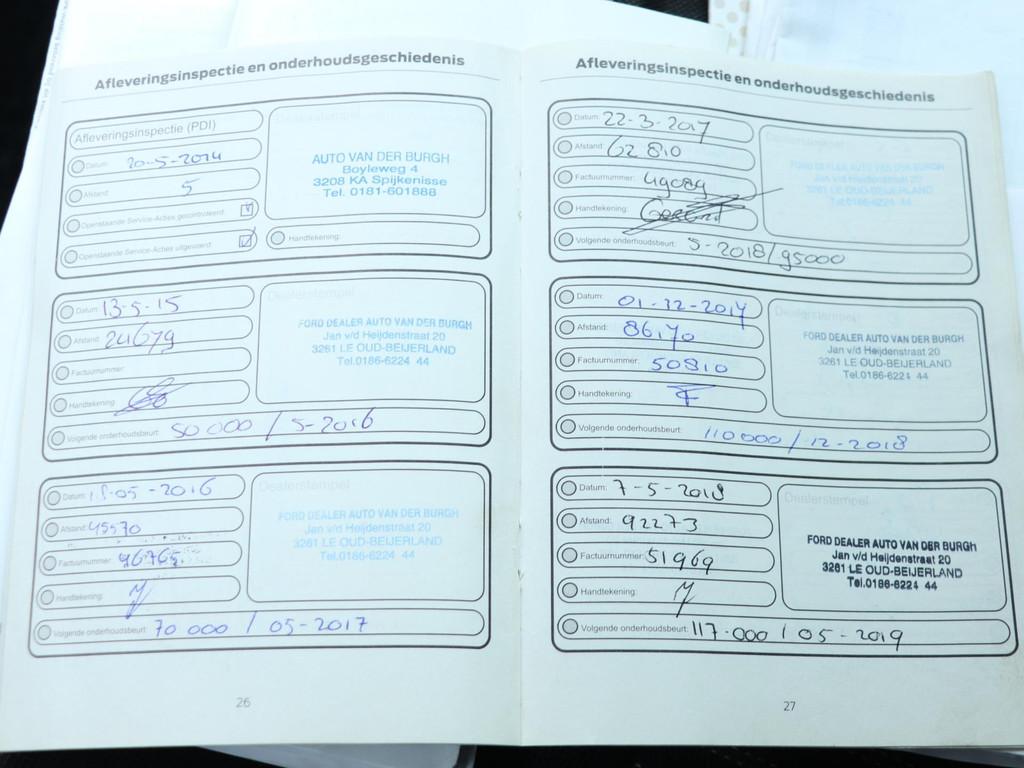 Afleveringsinspectie en onderhoudsgeschiedenis
Afleveringsinspectie (PDI)
Datum: 20-5-2014
Afstand: 5
Openstaande Service-Acties gecontroleerd:
Openstaande Service-Acties uitgevoerd:
AUTO VAN DER BURGH
Boyleweg 4
3208 KA Spijkenisse
Tel. 0181-601888
Handtekening:
Datum: 13-5-15
Afstand: 24679
Factuurnummer:
Handtekening:
Volgende onderhoudsbeurt: 50 000 / 5-2016
Dealerstempel
FORD DEALER AUTO VAN DER BURGH
Jan v/d Heijdenstraat 20
3261 LE OUD-BEIJERLAND
Tel.0186-6224 44
Datum: 18-05-2016
Afstand: 45570
Factuurnummer: 46765
Handtekening:
Volgende onderhoudsbeurt: 70 000 / 05-2017
Dealerstempel
FORD DEALER AUTO VAN DER BURGH
Jan v/d Heijdenstraat 20
3261 LE OUD-BEIJERLAND
Tel.0186-6224 44
26
Afleveringsinspectie en onderhoudsgeschiedenis
Datum: 22-3-2017
Afstand: 62810
Factuurnummer: 49089
Handtekening:
Volgende onderhoudsbeurt: 5-2018/95000
Dealerstempel
FORD DEALER AUTO VAN DER BURGH
Jan v/d Heijdenstraat 20
3261 LE OUD-BEIJERLAND
Tel.0186-6224 44
Datum: 01-12-2017
Afstand: 86170
Factuurnummer: 50810
Handtekening:
Volgende onderhoudsbeurt: 110000 / 12-2018
Dealerstempel
FORD DEALER AUTO VAN DER BURGH
Jan v/d Heijdenstraat 20
3261 LE OUD-BEIJERLAND
Tel.0186-6224 44
Datum: 7-5-2018
Afstand: 92273
Factuurnummer: 51969
Handtekening:
Volgende onderhoudsbeurt: 117.000 / 05-2019
Dealerstempel
FORD DEALER AUTO VAN DER BURGH
Jan v/d Heijdenstraat 20
3261 LE OUD-BEIJERLAND
Tel.0186-6224 44
27